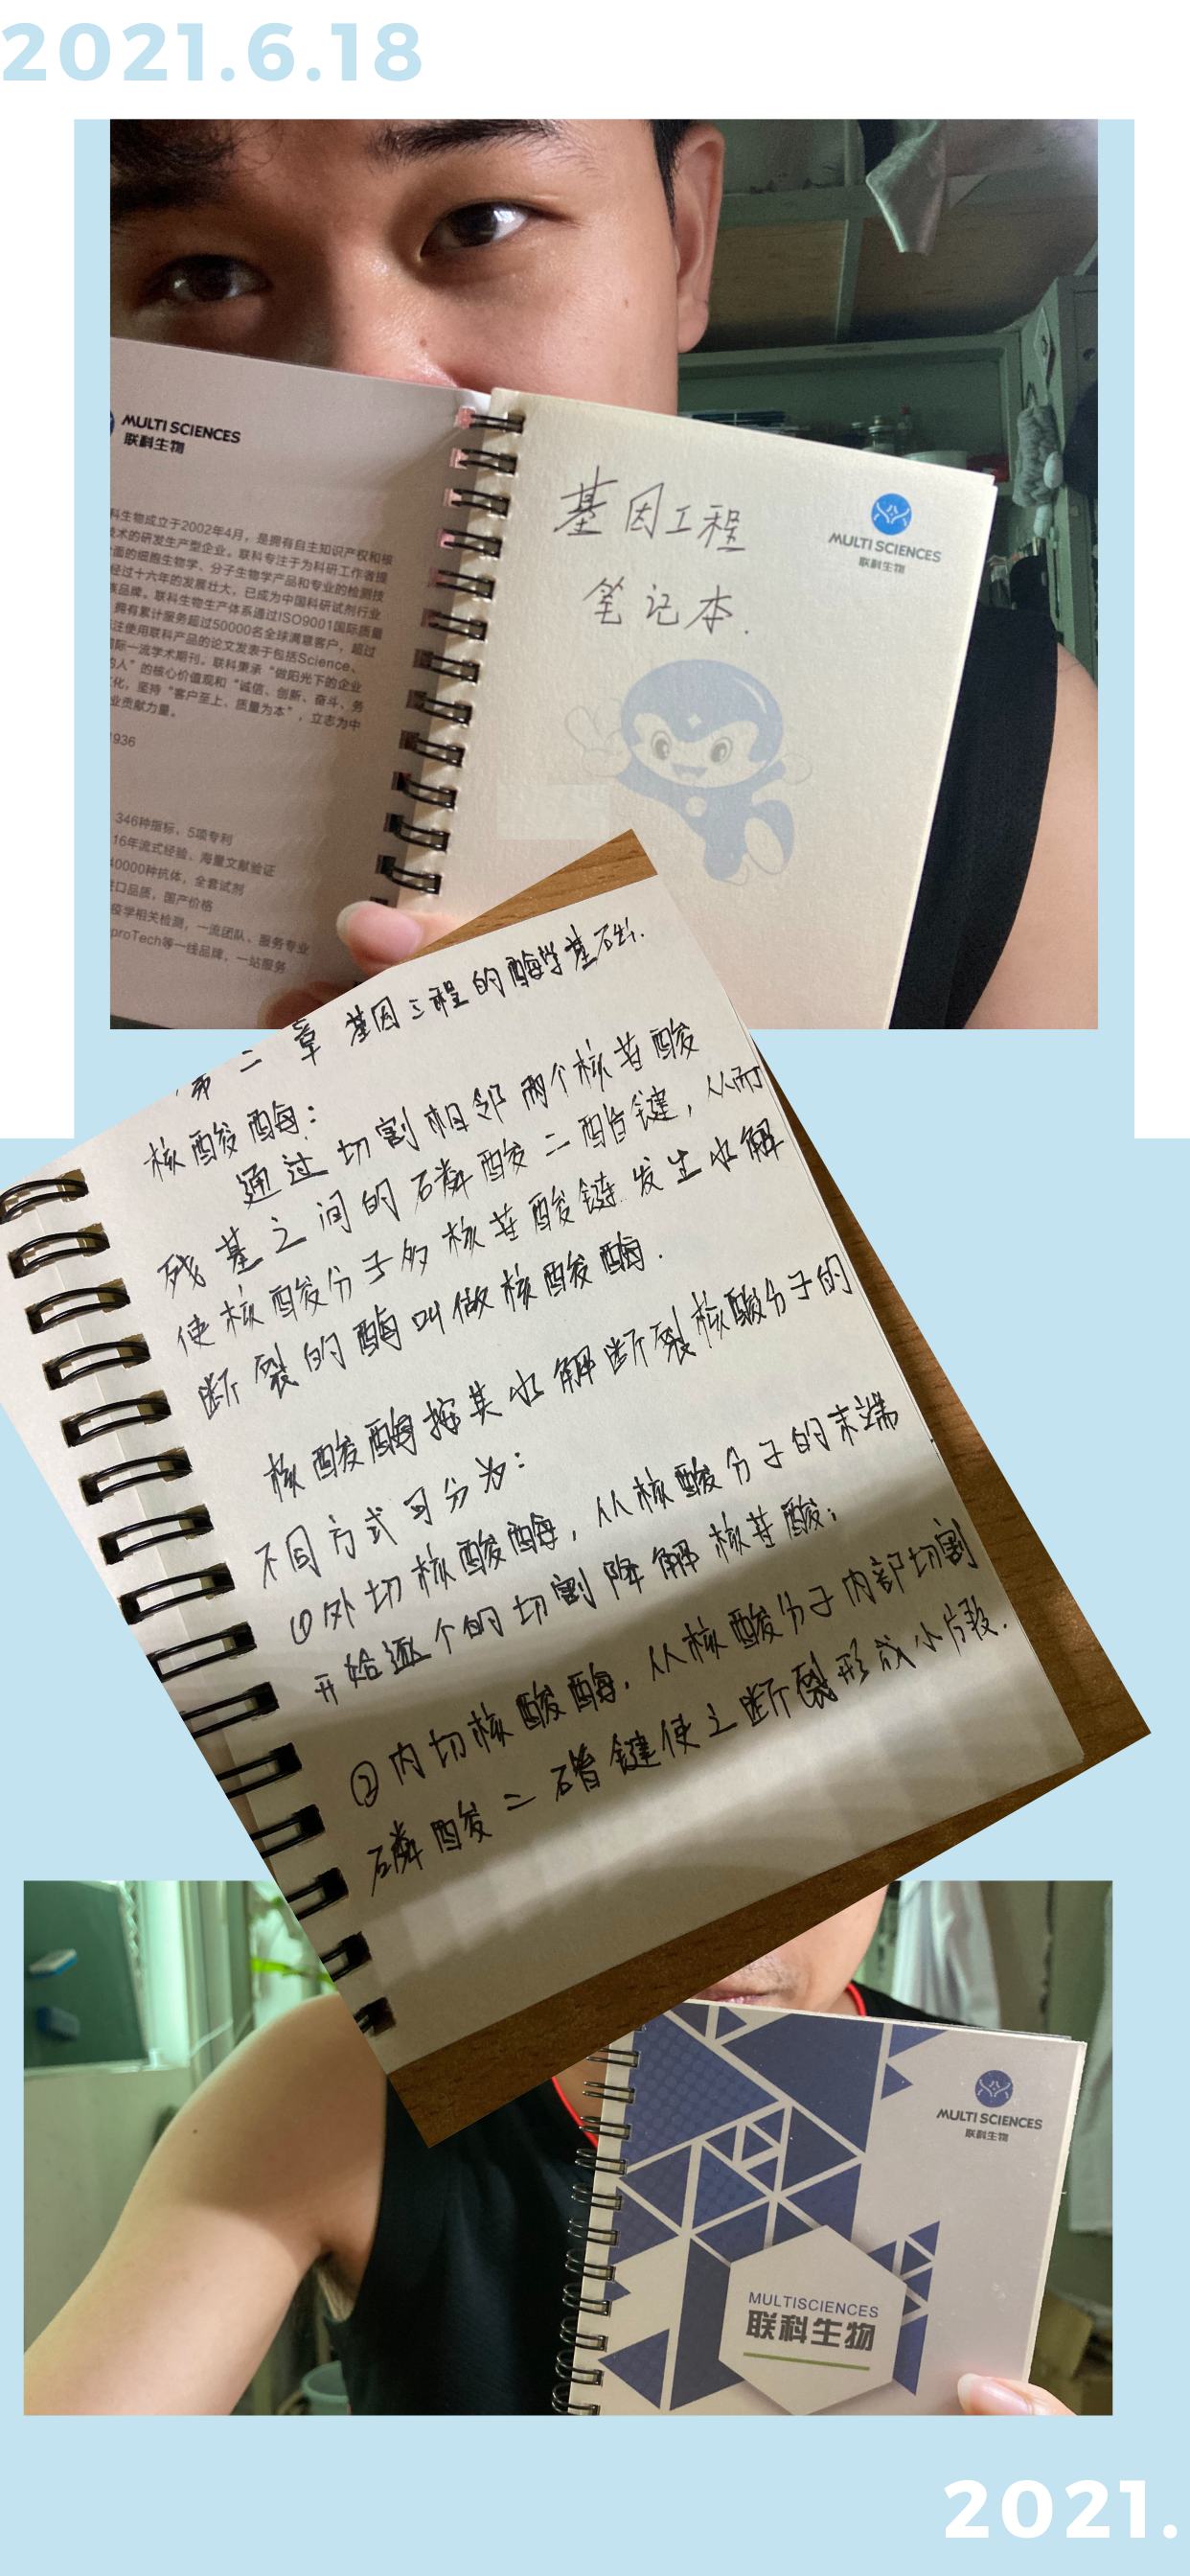 2021.6.18
MULTI SCIENCES
联科生物
科生物成立于2002年4月，是拥有自主知识产权和核
技术的研发生产型企业。联科专注于为科研工作者提
面的细胞生物学、分子生物学产品和专业的检测技
经过十六年的发展壮大，已成为中国科研试剂行业
族品牌。联科生物生产体系通过ISO9001国际质量
拥有累计服务超过50000名全球满意客户，超过
注使用联科产品的论文发表于包括Science、
国际一流学术期刊。联科秉承“做阳光下的企业
的人”的核心价值观和“诚信、创新、奋斗、务
化，坚持“客户至上、质量为本”，立志为中
业贡献力量。
936
346种指标，5项专利
16年流式经验，海量文献验证
40000种抗体，全套试剂
进口品质，国产价格
疫学相关检测，一流团队、服务专业
proTech等一线品牌，一站服务
基因工程
笔记本.
MULTI SCIENCES
联科生物
第二章 基因工程的酶学基础.
核酸酶：
通过切割相邻两个核苷酸
残基之间的磷酸二酯键，从而
使核酸分子多核苷酸链发生水解
断裂的酶叫做核酸酶.
核酸酶按其水解断裂核酸分子的
不同方式可分为：
①外切核酸酶，从核酸分子的末端
开始逐个的切割降解核苷酸；
②内切核酸酶，从核酸分子内部切割
磷酸二酯键使之断裂形成小片段.
MULTI SCIENCES
联科生物
MULTISCIENCES
联科生物
2021.